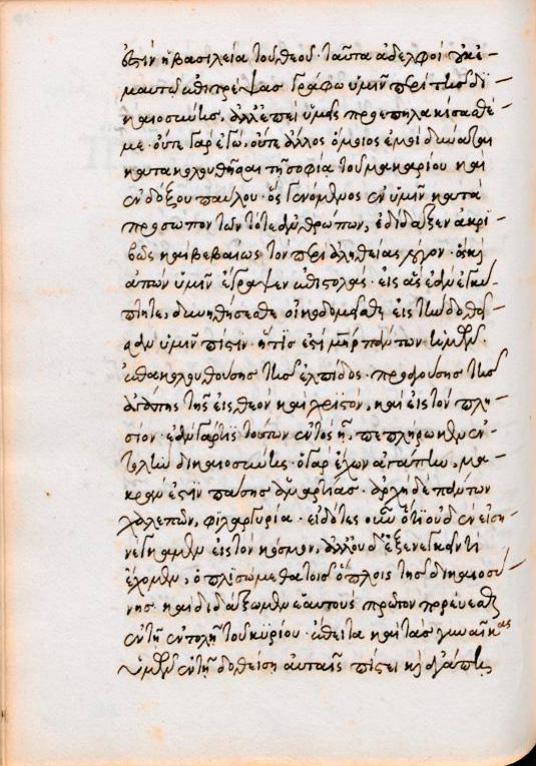 ἐστὶν ἡ βασιλεία τοῦ θεοῦ· ταῦτα ἀδελφοὶ οὐκ ἐ-
μαυτῷ ἐπιτρέψας γράφω ὑμῖν περὶ τῆς δι-
καιοσύνης, ἀλλ' ἐπεὶ ὑμεῖς προεπηλακίσασθέ
με· οὔτε γὰρ ἐγώ, οὔτε ἄλλος ὅμοιος ἐμοὶ δύναται
κατακολουθῆσαι τῇ σοφίᾳ τοῦ μακαρίου καὶ
ἐνδόξου παύλου· ὃς γενόμενος ἐν ὑμῖν κατὰ
πρόσωπον τῶν τότε ἀνθρώπων, ἐδίδαξεν ἀκρι-
βῶς καὶ βεβαίως τὸν περὶ ἀληθείας λόγον· ὃς καὶ
ἀπὼν ὑμῖν ἔγραψεν ἐπιστολάς· εἰς ἃς ἐὰν ἐγκύ-
πτητε, δυνηθήσεσθε οἰκοδομεῖσθαι εἰς τὴν δοθεῖ-
σαν ὑμῖν πίστιν· ἥτις ἐστὶ μήτηρ πάντων ἡμῶν·
ἐπακολουθούσης τῆς ἐλπίδος· προαγούσης τῆς
ἀγάπης τῆς εἰς θεὸν καὶ χριστὸν, καὶ εἰς τὸν πλη-
σίον· ἐὰν γάρ τις τούτων ἐντὸς ᾖ, πεπλήρωκεν ἐν-
τολὴν δικαιοσύνης· ὁ γὰρ ἔχων ἀγάπην, μα-
κράν ἐστιν πάσης ἁμαρτίας· ἀρχὴ δὲ πάντων
χαλεπῶν, φιλαργυρία· εἰδότες οὖν ὅτι οὐδὲν εἰση-
νέγκαμεν εἰς τὸν κόσμον, ἀλλ' οὐδ' ἐξενεγκεῖν τι
ἔχομεν, ὁπλισώμεθα τοῖς ὅπλοις τῆς δικαιοσύ-
νης· καὶ διδάξωμεν ἑαυτοὺς πρῶτον πορεύεσθαι
ἐν τῇ ἐντολῇ τοῦ κυρίου· ἔπειτα καὶ τὰς γυναῖκας
ὑμῶν ἐν τῇ δοθείσῃ αὐταῖς πίστει καὶ ἀγάπῃ